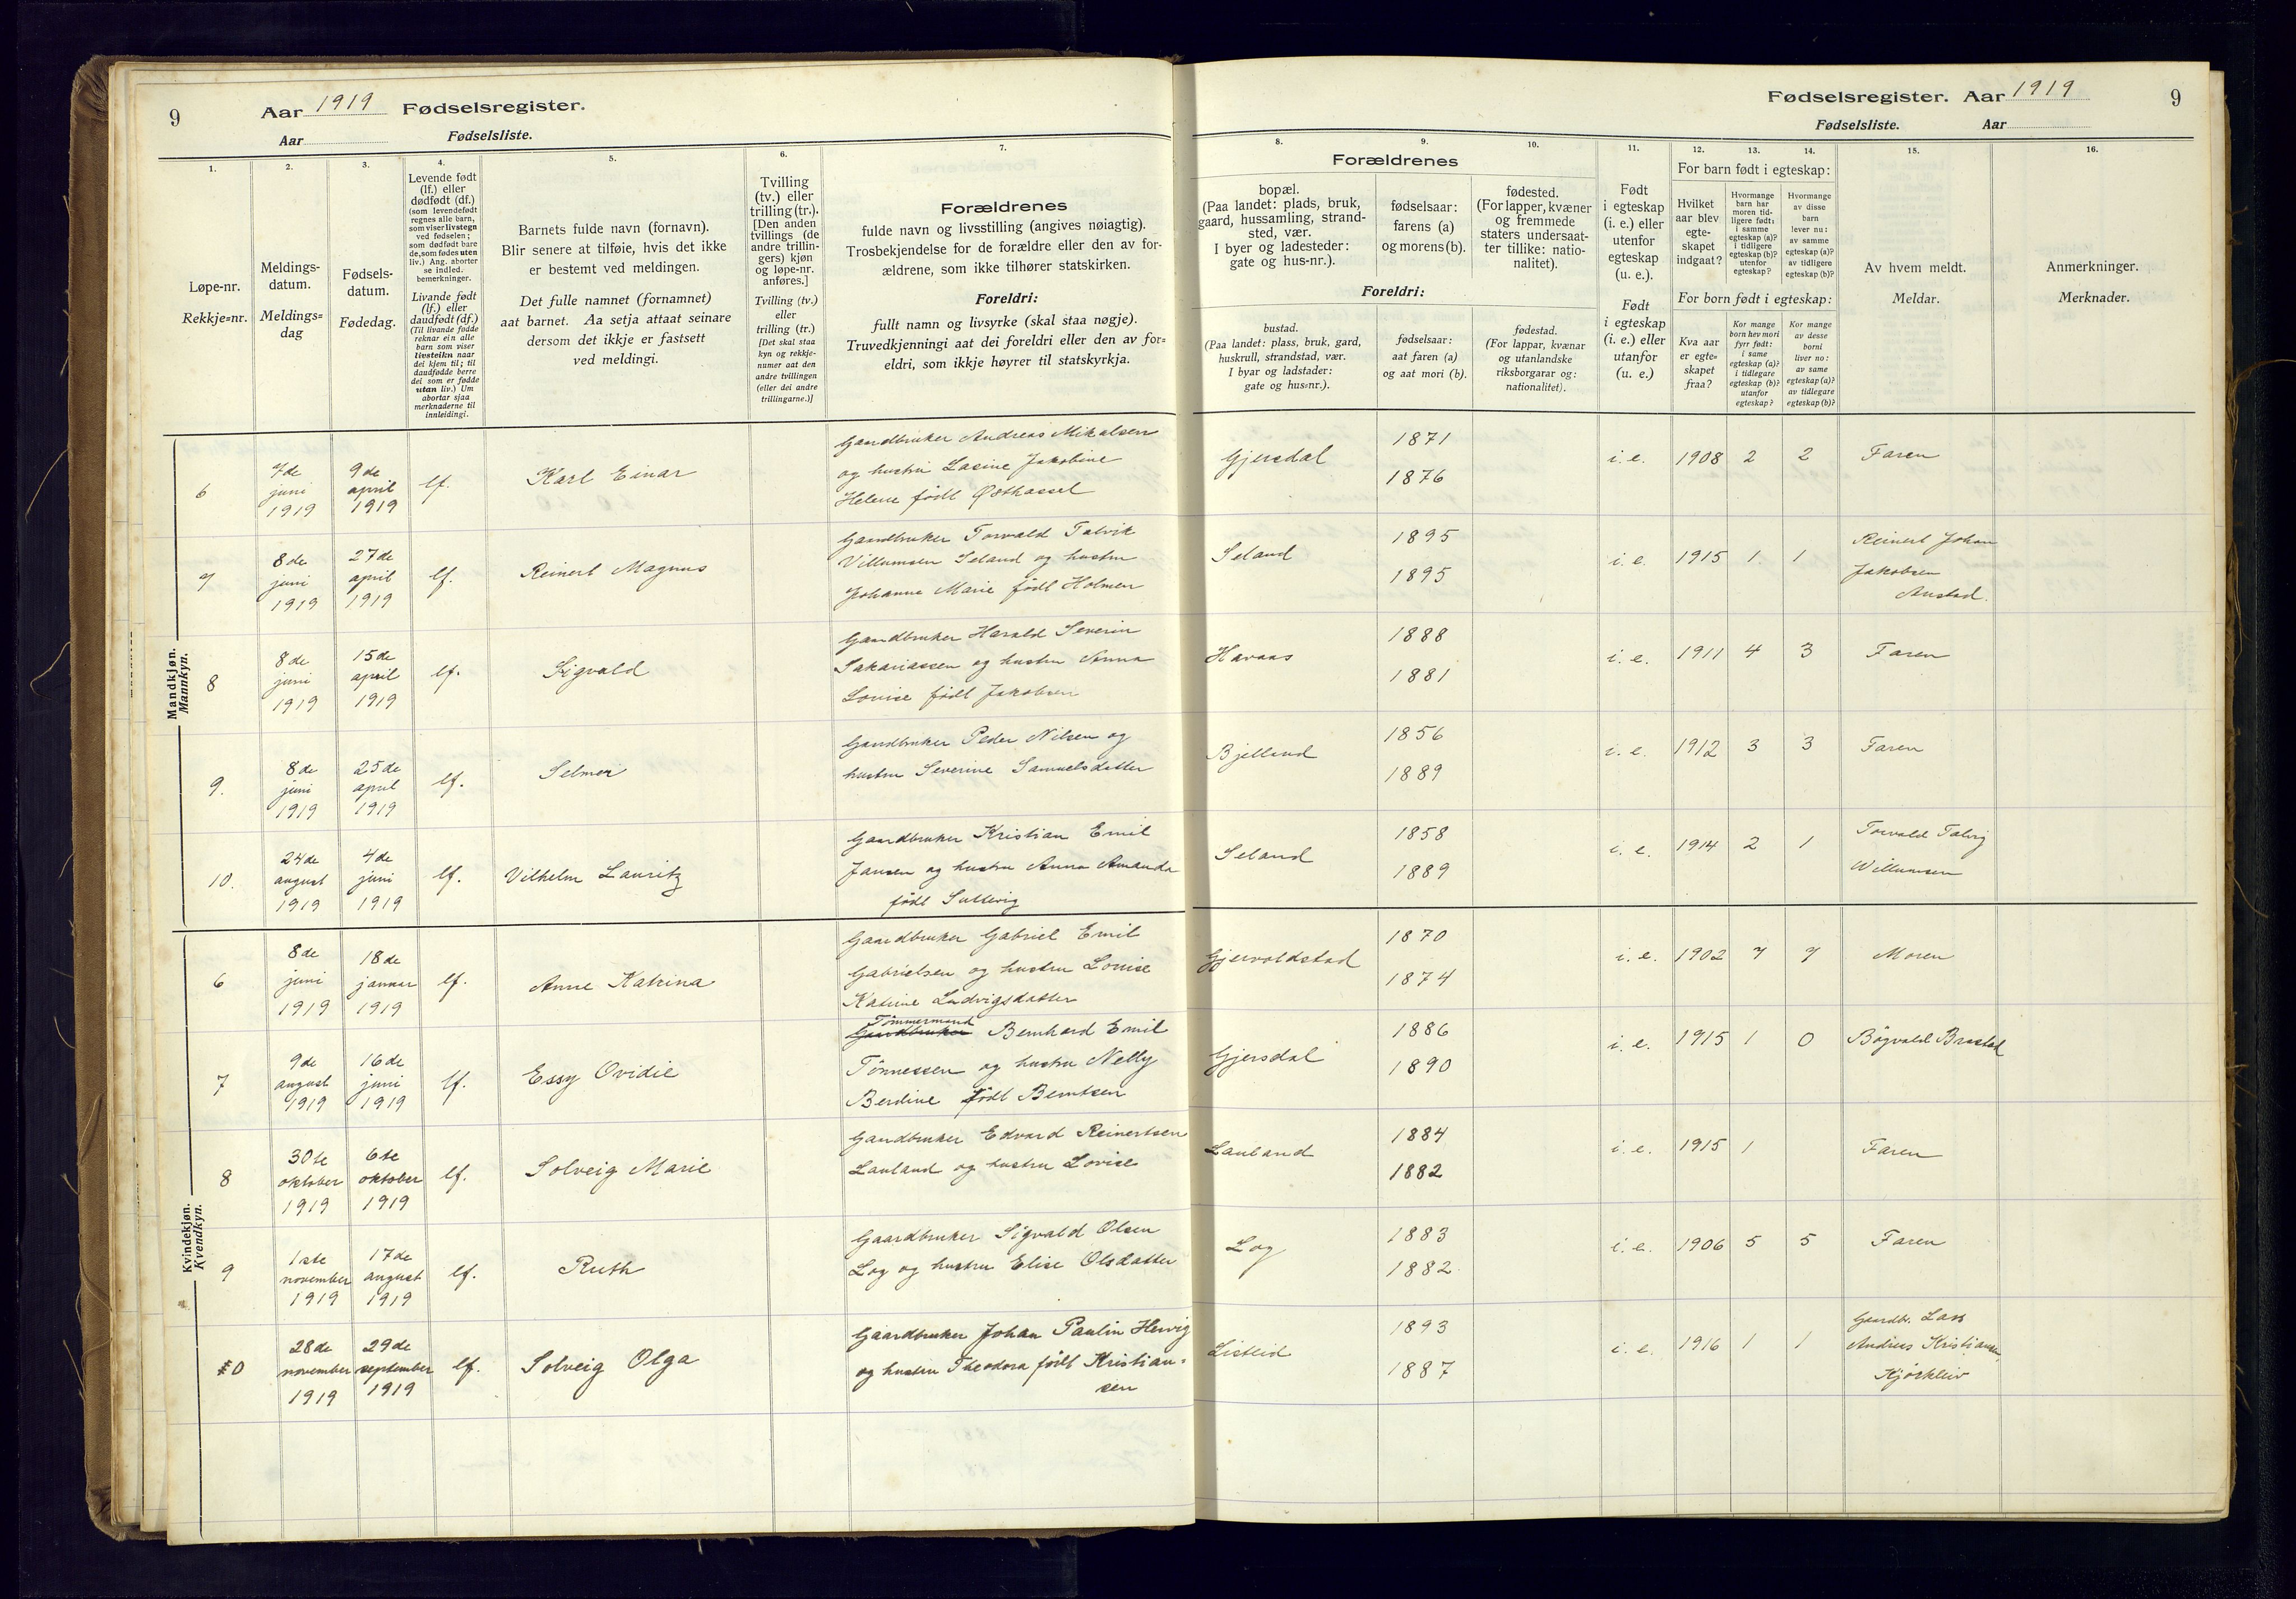 9
Aar 1919 Fødselsregister.
Aar Fødselsliste.
1.
2.
3.
4.
5.
6.
7.
Løpe-nr.
Rekkje=nr.
Meldings-
datum.
Meldings=
dag
Fødsels-
datum.
Fødedag.
Levende født
(lf.) eller
dødfødt (df.)
(som levendefødt
regnes alle barn,
som viser livstegn
ved fødselen;
som dødfødt bare
de, som fødes uten
liv.) Ang. aborter
se indled.
bemerkninger.
Livande født
(lf.) eller
daudfødt (df.)
(Til livande fødde
reknar ein alle
barn som viser
livsteikn naar
dei kjem til; til
daudfødde berre
dei som er fødde
utan liv.) Um
abortar sjaa
merknaderne til
innleidingi.
Barnets fulde navn (fornavn).
Blir senere at tilføie, hvis det ikke
er bestemt ved meldingen.
Det fulle namnet (fornamnet)
aat barnet. Aa setja attaat seinare
dersom det ikkje er fastsett
ved meldingi.
Tvilling
(tv.) eller
trilling (tr.).
[Den anden
tvillings (de
andre trillin-
gers) kjøn
og løpe-nr.
anføres.]
Tvilling (tv.)
eller
trilling (tr.)
[Det skal staa
kyn og rekkje-
numer aat den
andre tvillingen
(eller dei andre
trillingarne.)]
Forældrenes
fulde navn og livsstilling (angives nøiagtig).
Trosbekjendelse for de forældre eller den av for-
ældrene, som ikke tilhører statskirken.
Foreldri:
fullt namn og livsyrke (skal staa nøgje).
Truvedkjenningi aat dei foreldri eller den av for=
eldri, som ikkje høyrer til statskyrkja.
Mandkjøn.
Mannkyn.
6
7de
juni
1919
9de
april
1919
lf.
Karl Einar
Gaardbruker Andreas Mikalsen
og hustru Lasine Jakobine
Helene født Østhassel
7
8de
juni
1919
27de
april
1919
lf.
Reinert Magnus
Gaardbruker Torvald Talvik
Villumsen Seland og hustru
Johanne Marie født Holmen
8
8de
juni
1919
15de
april
1919
lf.
Sigvald
Gaardbruker Harald Severin
Sakariassen og hustru Anna
Lovise født Jakobsen
9.
8de
juni
1919
25de
april
1919
lf.
Selmer
Gaardbruker Peder Nilsen og
hustru Severine Samuelsdatter
10.
24de
august
1919
4de
juni
1919
lf.
Vilhelm Lauritz
Gaardbruker Kristian Emil
Jansen og hustru Anna Amanda
født
Kvindekjøn.
Kvendkyn.
6
8de
juni
1919
18de
januar
1919
lf.
Anne Katrina
Gaardbruker Gabriel Emil
Gabrielsen og hustru Louise
Katrine Ludvigsdatter
7
9de
august
1919
16de
juni
1919
lf.
Essy Ovidie
Tømmermand
Gaardbruker Bernhard Emil
Tønnessen og hustru Nelly
Berdine født Berntsen
8
30te
oktober
1919
6te
oktober
1919
lf.
Solveig Marie
Gaardbruker Edvard Reinertsen
Lauland og hustru Lovise
9
1ste
november
1919
17de
august
1919
lf.
Ruth
Gaardbruker Sigvald Olsen
Log og hustru Elise Olsdatter
10
28de
november
1919
29de
september
1919
lf.
Solveig Olga
Gaardbruker Johan Paulin Hervig
og hustru Theodora født Kristian=
sen
Fødselsregister. Aar 1919
9
Fødselsliste. Aar
8.
9.
10.
11.
12.
13.
14.
15.
16.
Forældrenes
bopæl.
(Paa landet: plads, bruk,
gaard, hussamling, strand-
sted, vær.
I byer og ladesteder:
gate og hus-nr.).
fødselsaar:
farens (a)
og morens (b).
fødested.
(For lapper, kvæner
og fremmede
staters undersaat-
ter tillike: natio-
nalitet).
Foreldri:
bustad.
(Paa landet: plass, bruk, gard,
huskrull, strandstad, vær.
I byar og ladstader:
gate og hus=nr.).
fødselsaar:
aat faren (a)
og aat mori (b).
fødestad.
(For lappar, kvænar
og utanlandske
riksborgarar og:
nationalitet).
Født
i egteskap
(i. e.) eller
utenfor
egteskap
(u. e.).
Født
i egteskap
(i. e.) eller
utanfor
(u. e.)
For barn født i egteskap:
Hvilket
aar blev
egte-
skapet
indgaat?
Hvormange
barn har
moren tid-
ligere født:
i samme
egteskap (a)?
i tidligere
egteskap (b)?
utenfor
egteskap?
Hvormange
av disse
barn
lever nu:
av samme
egteskap (a)?
av tidligere
egteskap (b)?
For born født i egteskap:
Kva aar
er egte=
skapet
fraa?
Kor mange
born hev mori
fyrr født:
i same
egteskap (a)?
i tidlegare
egteskap (b)?
utanfor
egteskap?
Kor mange
av desse
borni
liver no:
av same
egteskap (a)?
av tidlegare
egteskap (b)?
Av hvem meldt.
Meldar.
Anmerkninger.
Merknader.
Gjersdal
1871
1876
i. e. 1908 2 2 Faren
Seland
1895
1895
i. e. 1915 1. 1
Reinert Johan
Jakobsen
Anstad.
Havaas
1888
1881
i. e. 1911 4 3 Faren
Bjelland
1856
1889
i. e. 1912 3 3 Faren
Seland
1858
1889
i. e. 1914 2 1
Torvald Talvig
Willumsen
Gjervoldstad
1870
1874
i. e. 1902 7 7 Moren
Gjersdal
1886
1890
i. e. 1915 1 0 Bøgvald Brastad
Lauland
1884
1882
i. e. 1915 1 Faren
Log
1883
1882
i. e. 1906 5 5 Faren
Listeid
1893
1887
i. e. 1916 1 1
Gaardbr. Lars
Andreas Kristiansen,
Kjørkleiv